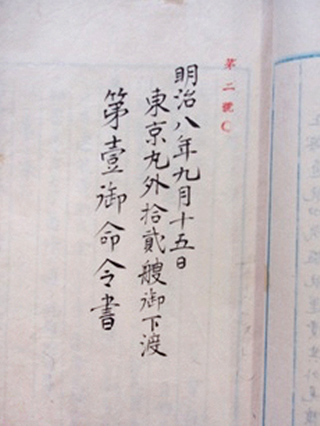 第二號
明治八年九月十五日
東京丸外拾貳艘御下渡
第壹御命令書